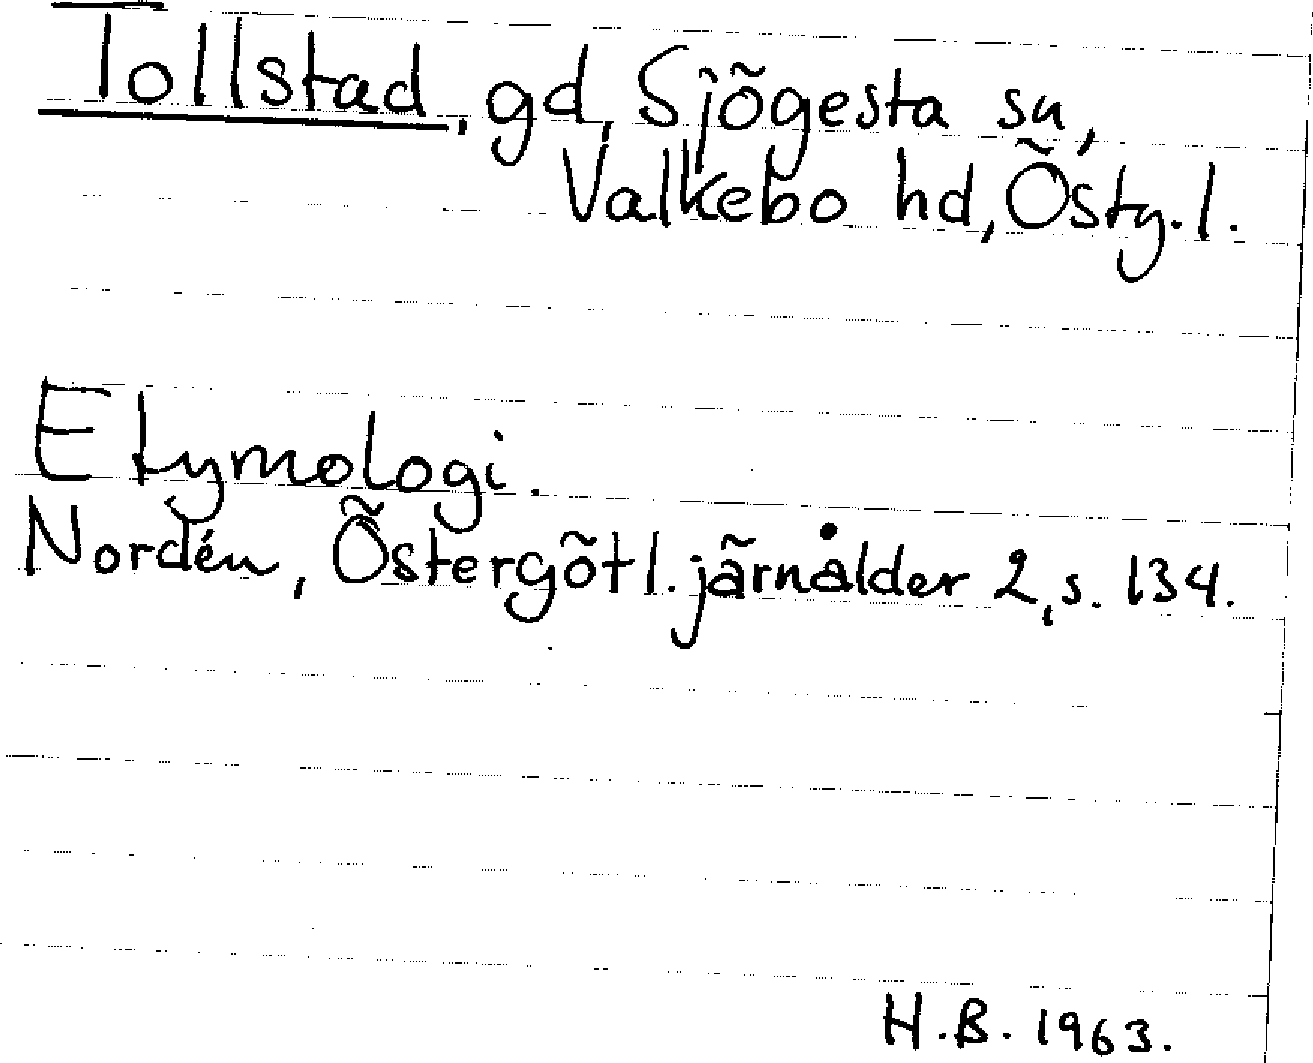 Tollstad, gd, Sjögesta sn,
Valkebo hd, Östg. l.
Etymologi.
Nordén, Östergötl. järnålder 2, s. 134.
H.B. 1963.